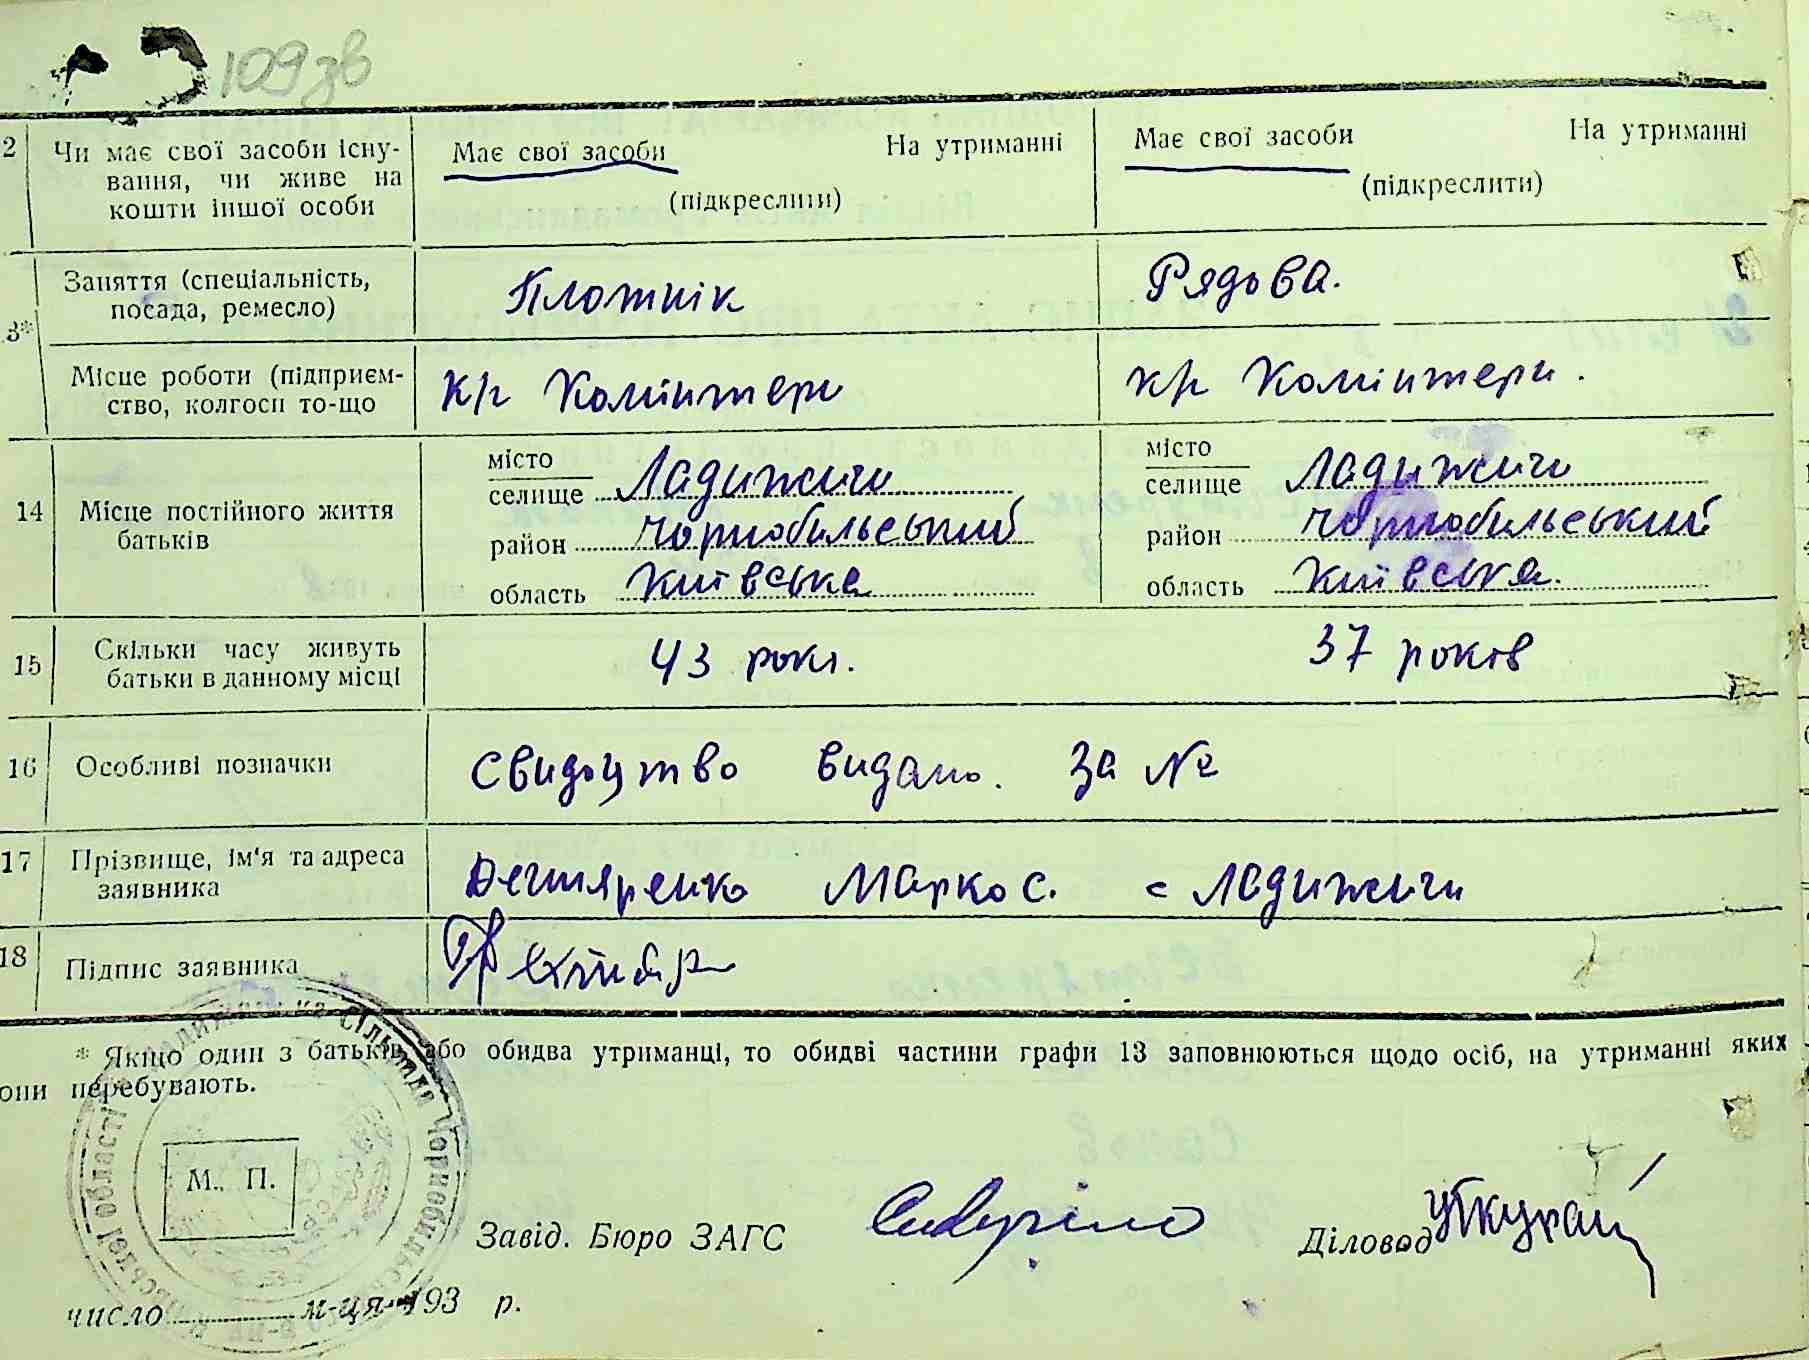 109 зв
2 Чи має свої засоби існу- Має свої засоби На утриманні Має свої засоби На утриманні
вання, чи живе на (підкреслити) (підкреслити)
кошти іншої особи
Заняття (спеціальність, Пложнік Рядова.
посада, ремесло)
3*
Місце роботи (підприєм- к/г Комінтерн к/г Комінтерн.
ство, колгосп то-що
місто місто
селище Ладижичи селище Ладижичи
14 Місце постійного життя район Чорнобильський район Чорнобильський
батьків
область Київська область Київська.
15 Скільки часу живуть 43 роки. 37 років
батьки в данному місці
16 Особливі позначки Свидоцтво видано. За №
17 Прізвище, ім'я та адреса Дегтяренко Марко С. с Ладижичи
заявника
18 Підпис заявника
* Якщо один з батьків або обидва утриманці, то обидві частини графи 13 заповнюються щодо осіб, на утриманні яких
они перебувають.
М. П.
Завід. Бюро ЗАГС Діловод
число м-ця 193 р.
Сільрада Чорнобильського області